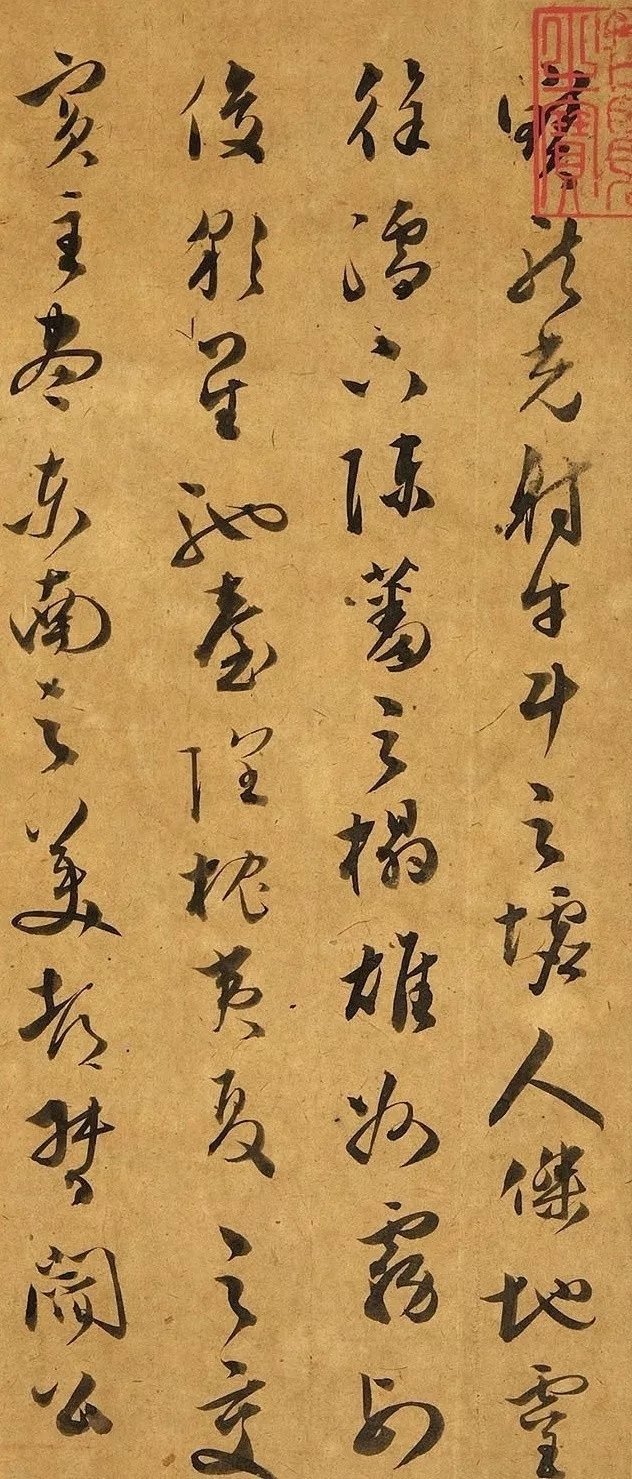 寶龍光射牛斗之墟人傑地靈
徐濡下陳蕃之榻雄州霧列
俊彩星馳臺隍枕夷夏之交
賓主盡東南之美都督閻公